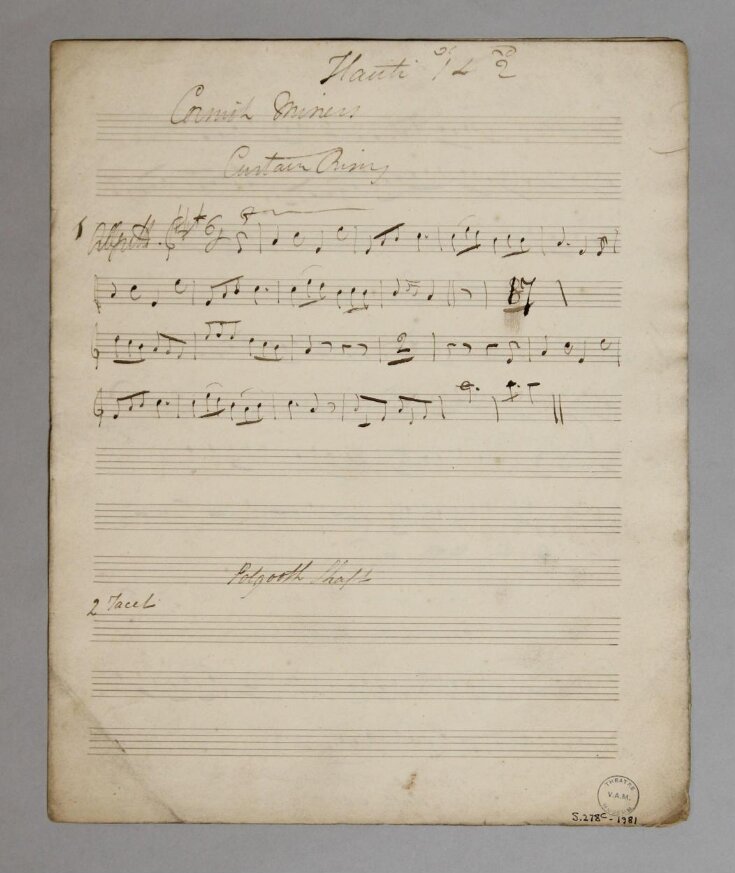 Flauti 1º & 2do
Cornish Miners
Curtain Rising
1
Allgretto
87
2
Polgooth Shaft
2 Tacet
THEATRE
V.A.M.
MUSEUM
S.278c-1981